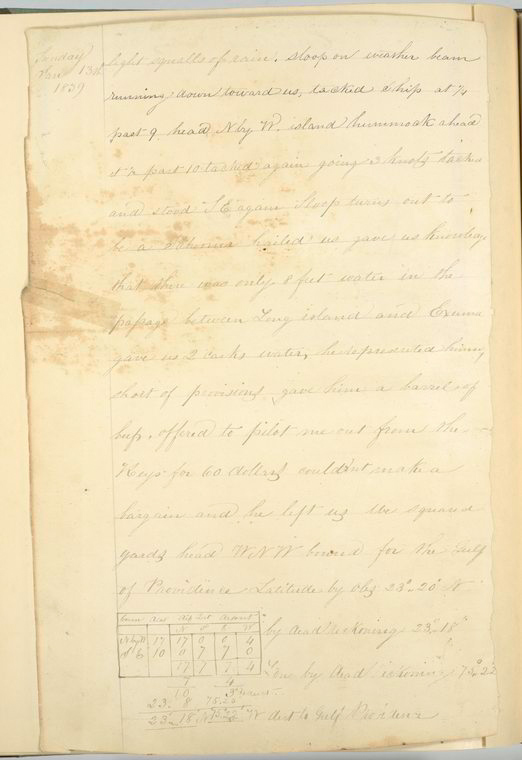 Sunday
Jan 13th
1839
light squalls of rain. sloop on weather beam
running down toward us, tacked ship at 1/4
past 9 head N by W. island hummock ahead
at past 10 tacked again going 3 knots tacked
and stood S E again Sloop turns out to
be a hailed us gave us knowledge
that there was only 8 feet water in the
passage between Long island and Exuma
gave us 2 casks water, he represented himself
short of provisions gave him a barrel of
beef. offered to pilot me out from the
Keys for 60 dollars couldnt make a
bargain and he left us We squared
yards head W N W bound for the Gulf
of Providence Latitude by obs 23°. 20' N
by dead reckoning 23°. 18"
Lon by dead reckoning 75°
Course dist Departure
N S E W
N by W 17 17 0 0 4
S E 10 0 7 7 0
17 7 7 4
7 4
10 3
23. 8 75.20
23. 18 N
W dist to Gulf Providence